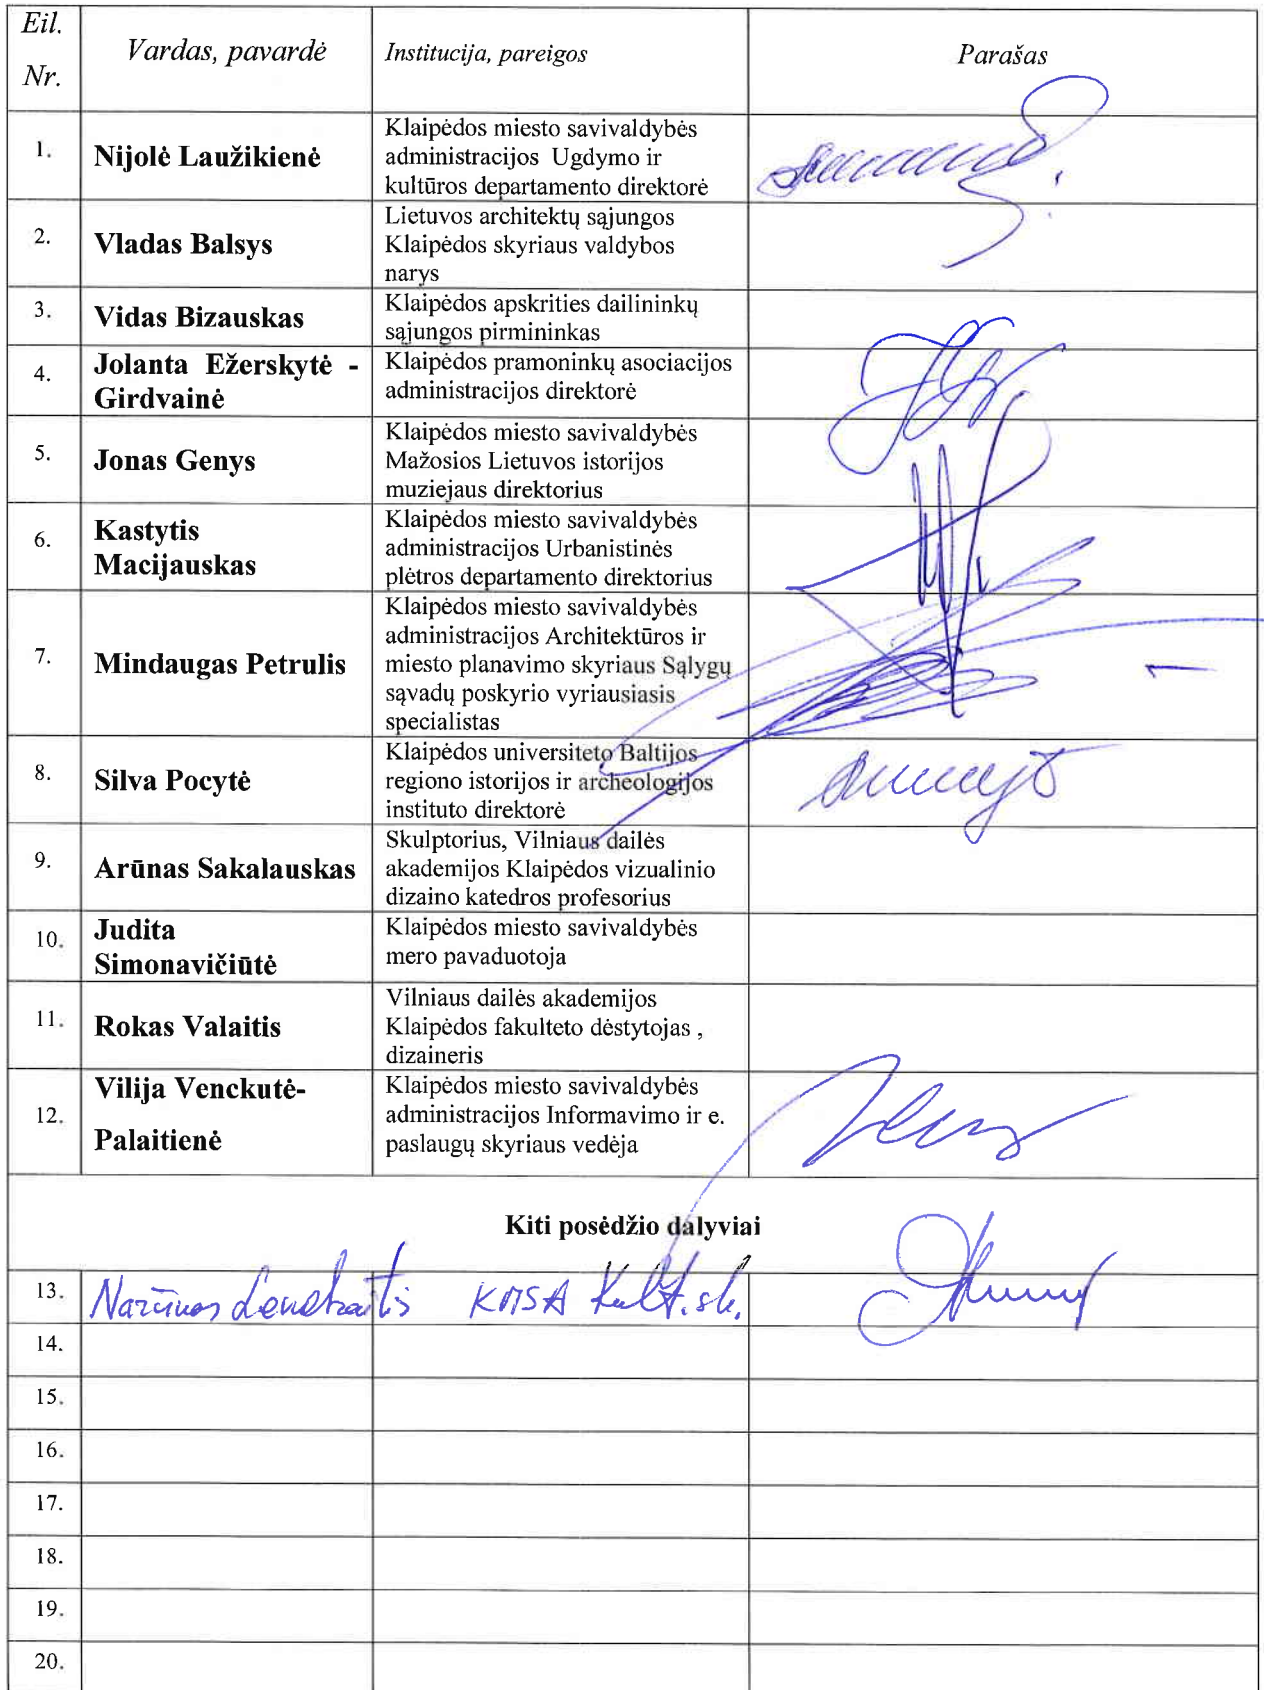 Eil.
Nr.
Vardas, pavardė
Institucija, pareigos
Parašas
1.
Nijolė Laužikienė
Klaipėdos miesto savivaldybės
administracijos Ugdymo ir
kultūros departamento direktorė
2.
Vladas Balsys
Lietuvos architektų sąjungos
Klaipėdos skyriaus valdybos
narys
3.
Vidas Bizauskas
Klaipėdos apskrities dailininkų
sąjungos pirmininkas
4.
Jolanta Ežerskytė -
Girdvainė
Klaipėdos pramoninkų asociacijos
administracijos direktorė
5.
Jonas Genys
Klaipėdos miesto savivaldybės
Mažosios Lietuvos istorijos
muziejaus direktorius
6.
Kastytis
Macijauskas
Klaipėdos miesto savivaldybės
administracijos Urbanistinės
plėtros departamento direktorius
7.
Mindaugas Petrulis
Klaipėdos miesto savivaldybės
administracijos Architektūros ir
miesto planavimo skyriaus Sąlygų
sąvadų poskyrio vyriausiasis
specialistas
8.
Silva Pocytė
Klaipėdos universiteto Baltijos
regiono istorijos ir archeologijos
instituto direktorė
9.
Arūnas Sakalauskas
Skulptorius, Vilniaus dailės
akademijos Klaipėdos vizualinio
dizaino katedros profesorius
10.
Judita
Simonavičiūtė
Klaipėdos miesto savivaldybės
mero pavaduotoja
11.
Rokas Valaitis
Vilniaus dailės akademijos
Klaipėdos fakulteto dėstytojas ,
dizaineris
12.
Vilija Venckutė-
Palaitienė
Klaipėdos miesto savivaldybės
administracijos Informavimo ir e.
paslaugų skyriaus vedėja
Kiti posėdžio dalyviai
13.
Narūnas Lendraitis
KMSA Kult. sk.
14.
15.
16.
17.
18.
19.
20.